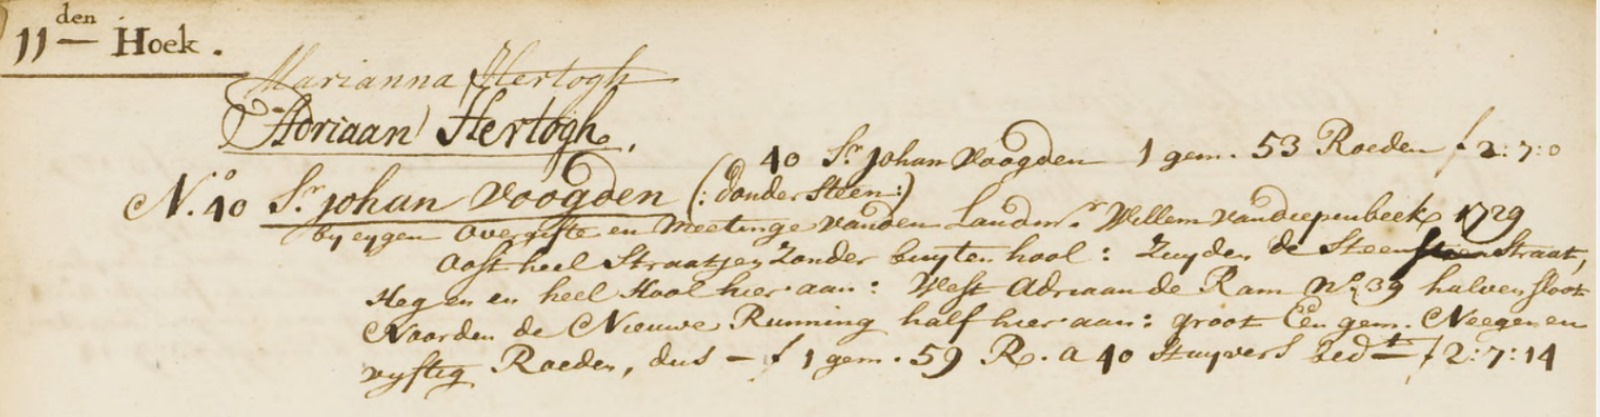 11den Hoek.
Marianna Hertogh
Adriaan Hertogh.
40 Sr. Johan Voogden 1 gem. 53 Roeden f 2:7:0
No. 40 Sr. Johan Voogden (: donder Steen:)
by eygen overgifte en Meetinge vanden Landmr. Willem van diepenbeek 1729
Oost heel Straatjen Zonder buyten hool: Zuyden de Steen Straat,
Heg en en heel Hool hier aan: West Adriaan de Ram No. 39 halven sloot
Noorden de Nieuwe Running half hier aan: groot Een gem. Neegen en
vyftig Roeden, dus - f 1 gem. 59 R. a 40 Stuyvers bedt. f 2:7:14